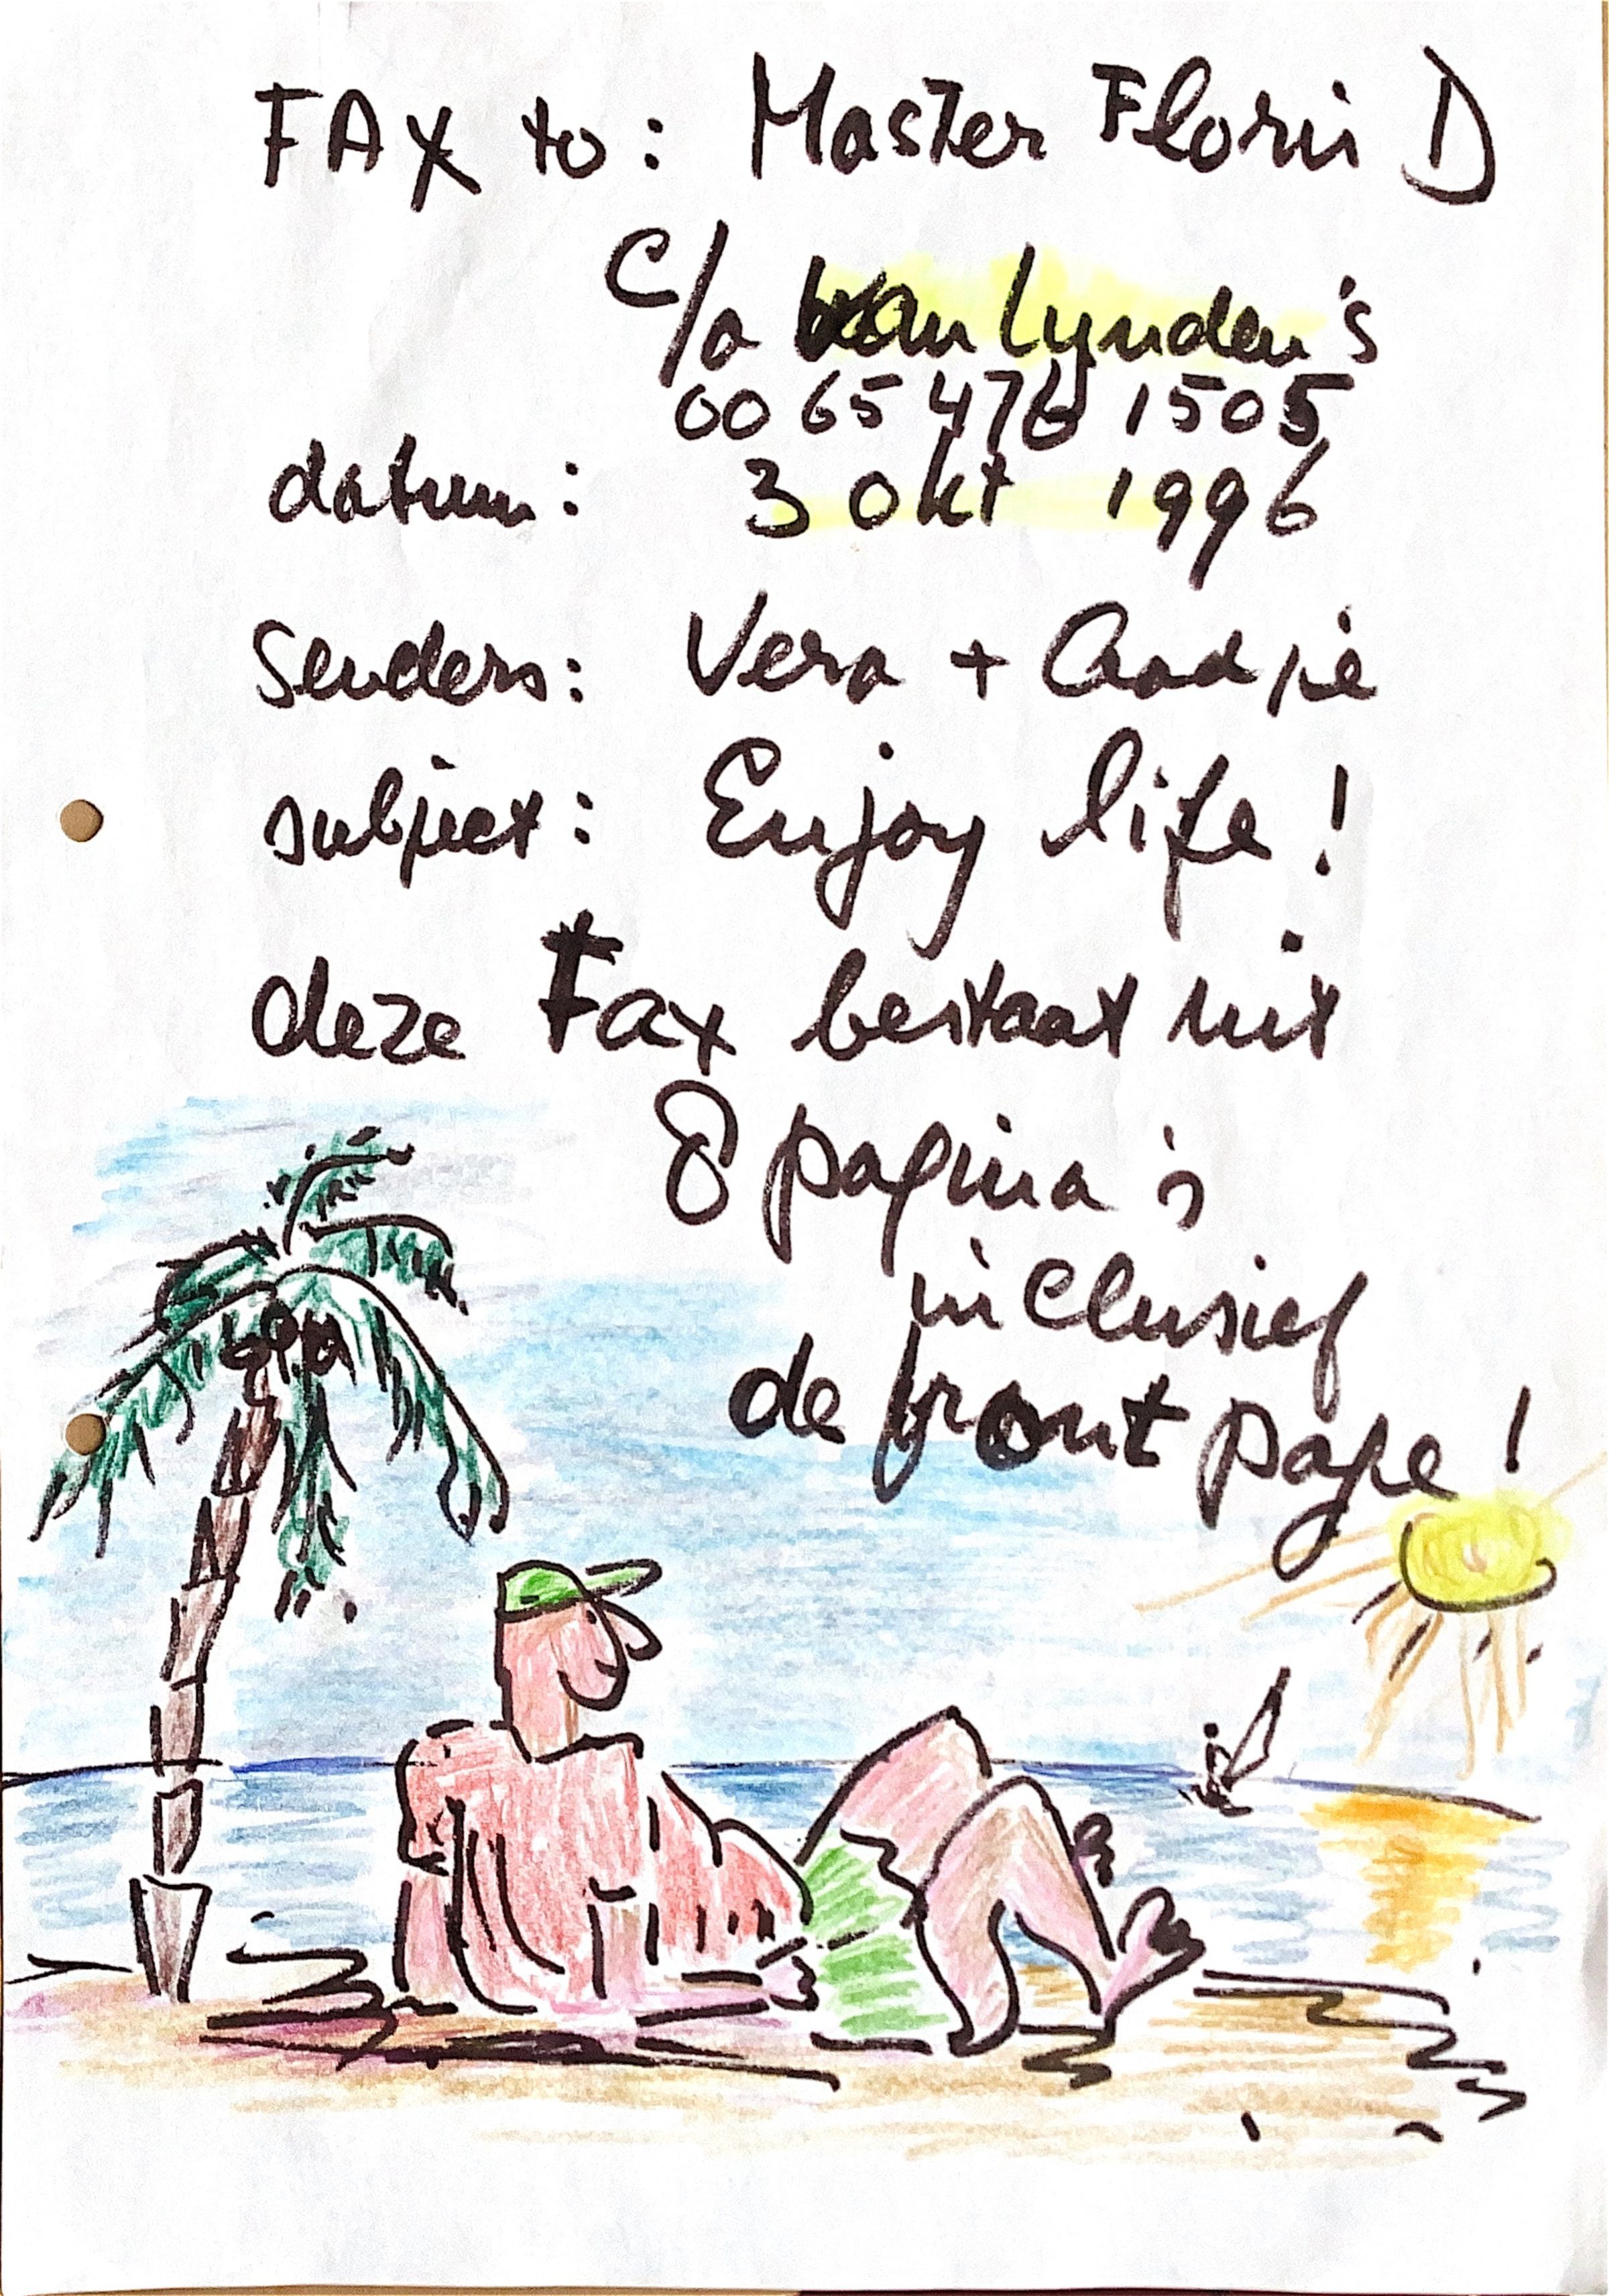 FAX to: Master Floris D
c/o van Lynden's
00 65 476 1505
datum: 3 okt 1996
Senders: Vera + Aadpie
subject: Enjoy life!
deze Fax bestaat uit
8 pagina's
inclusief
de front page!